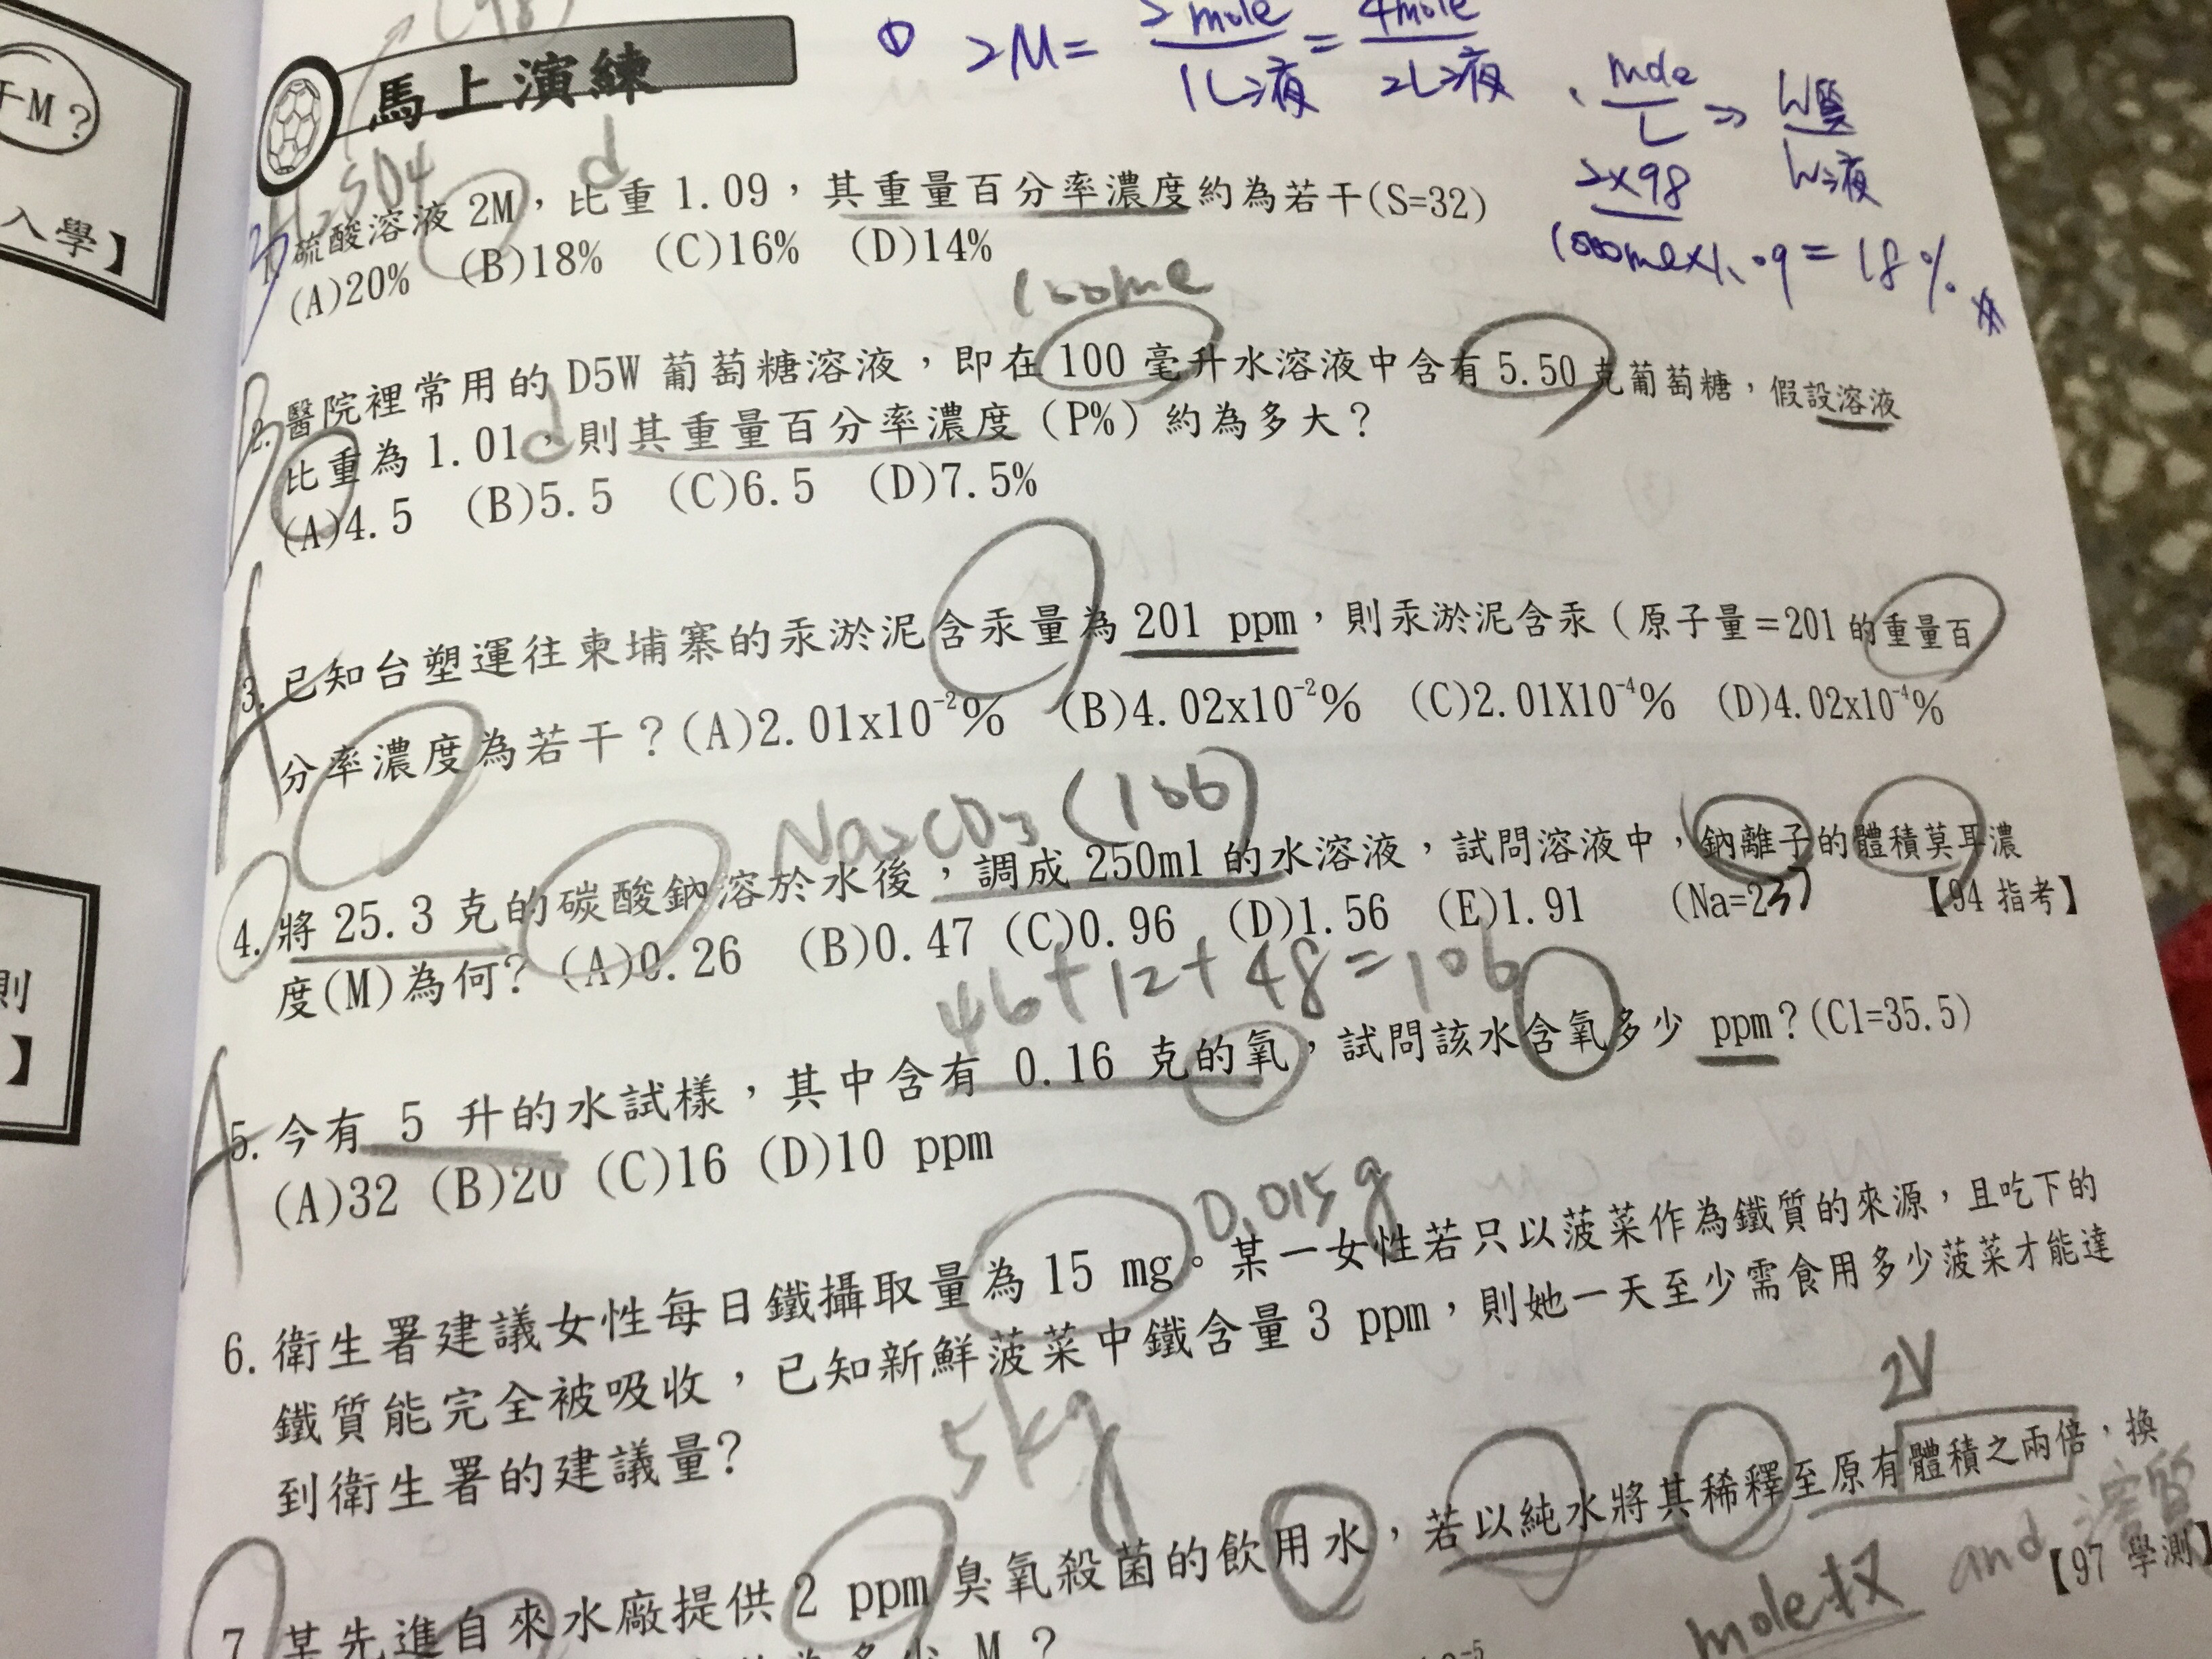 (98)
① 2M = 2mole/1L液 = 4mole/2L液
mole/L ⇒ W質/W液
馬上演練
干M?
入學】
H2SO4
d
2×98/1000ml×1.09 = 18%
1. 硫酸溶液 2M,比重 1.09,其重量百分率濃度約為若干(S=32)
(A)20% (B)18% (C)16% (D)14%
100ml
2. 醫院裡常用的 D5W 葡萄糖溶液,即在 100 毫升水溶液中含有 5.50 克葡萄糖,假設溶液
比重為 1.01,則其重量百分率濃度(P%)約為多大?
d
(A)4.5 (B)5.5 (C)6.5 (D)7.5%
B
3. 已知台塑運往柬埔寨的汞淤泥含汞量為 201 ppm,則汞淤泥含汞(原子量=201 的重量百
分率濃度為若干?(A)2.01x10⁻²% (B)4.02x10⁻²% (C)2.01X10⁻⁴% (D)4.02x10⁻⁴%
A
Na2CO3 (106)
4. 將 25.3 克的碳酸鈉溶於水後,調成 250ml 的水溶液,試問溶液中,鈉離子的體積莫耳濃
度(M)為何? (A)0.26 (B)0.47 (C)0.96 (D)1.56 (E)1.91 (Na=23) 【94 指考】
46+12+48=106
則
】
5. 今有 5 升的水試樣,其中含有 0.16 克的氧,試問該水含氧多少 ppm?(Cl=35.5)
(A)32 (B)20 (C)16 (D)10 ppm
A
0.015g
6. 衛生署建議女性每日鐵攝取量為 15 mg。某一女性若只以菠菜作為鐵質的來源,且吃下的
鐵質能完全被吸收,已知新鮮菠菜中鐵含量 3 ppm,則她一天至少需食用多少菠菜才能達
到衛生署的建議量?
5kg
2V
7. 某先進自來水廠提供 2 ppm 臭氧殺菌的飲用水,若以純水將其稀釋至原有體積之兩倍,換
mole放 and 溶質
【97 學測】
為多少 M?